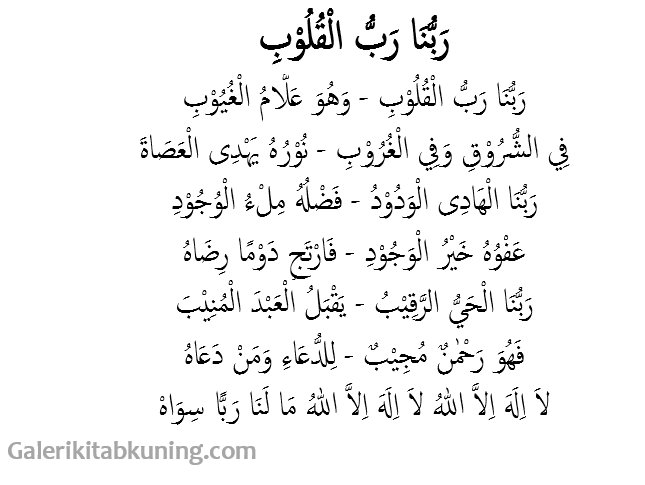 رَبُّنَا رَبُّ الْقُلُوْبِ
رَبُّنَا رَبُّ الْقُلُوْبِ - وَهُوَ عَلّامُ الْغُيُوْبِ
فِي الشُّرُوْقِ وَفِي الْغُرُوْبِ - نُوْرُهُ يَهْدِى الْعَصَاةَ
رَبُّنَا الْهَادِى الْوَدُوْدُ - فَضْلُهُ مِلْءُ الْوُجُوْدِ
عَفْوُهُ خَيْرُ الْوَجُوْدِ - فَارْتَجِ دَوْمًا رِضَاهُ
رَبُّنَا الْحَيُّ الرَّقِيْبُ - يَقْبَلُ الْعَبْدَ الْمُنِيْبَ
فَهُوَ رَحْمٰنٌ مُجِيْبٌ - لِلدُّعَاءِ وَمَنْ دَعَاهُ
لاَ اِلَهَ اِلاَّ اللهُ لاَ اِلَهَ اِلاَّ اللهُ مَا لَنَا رَبًّا سِوَاهْ
Galerikitabkuning.com